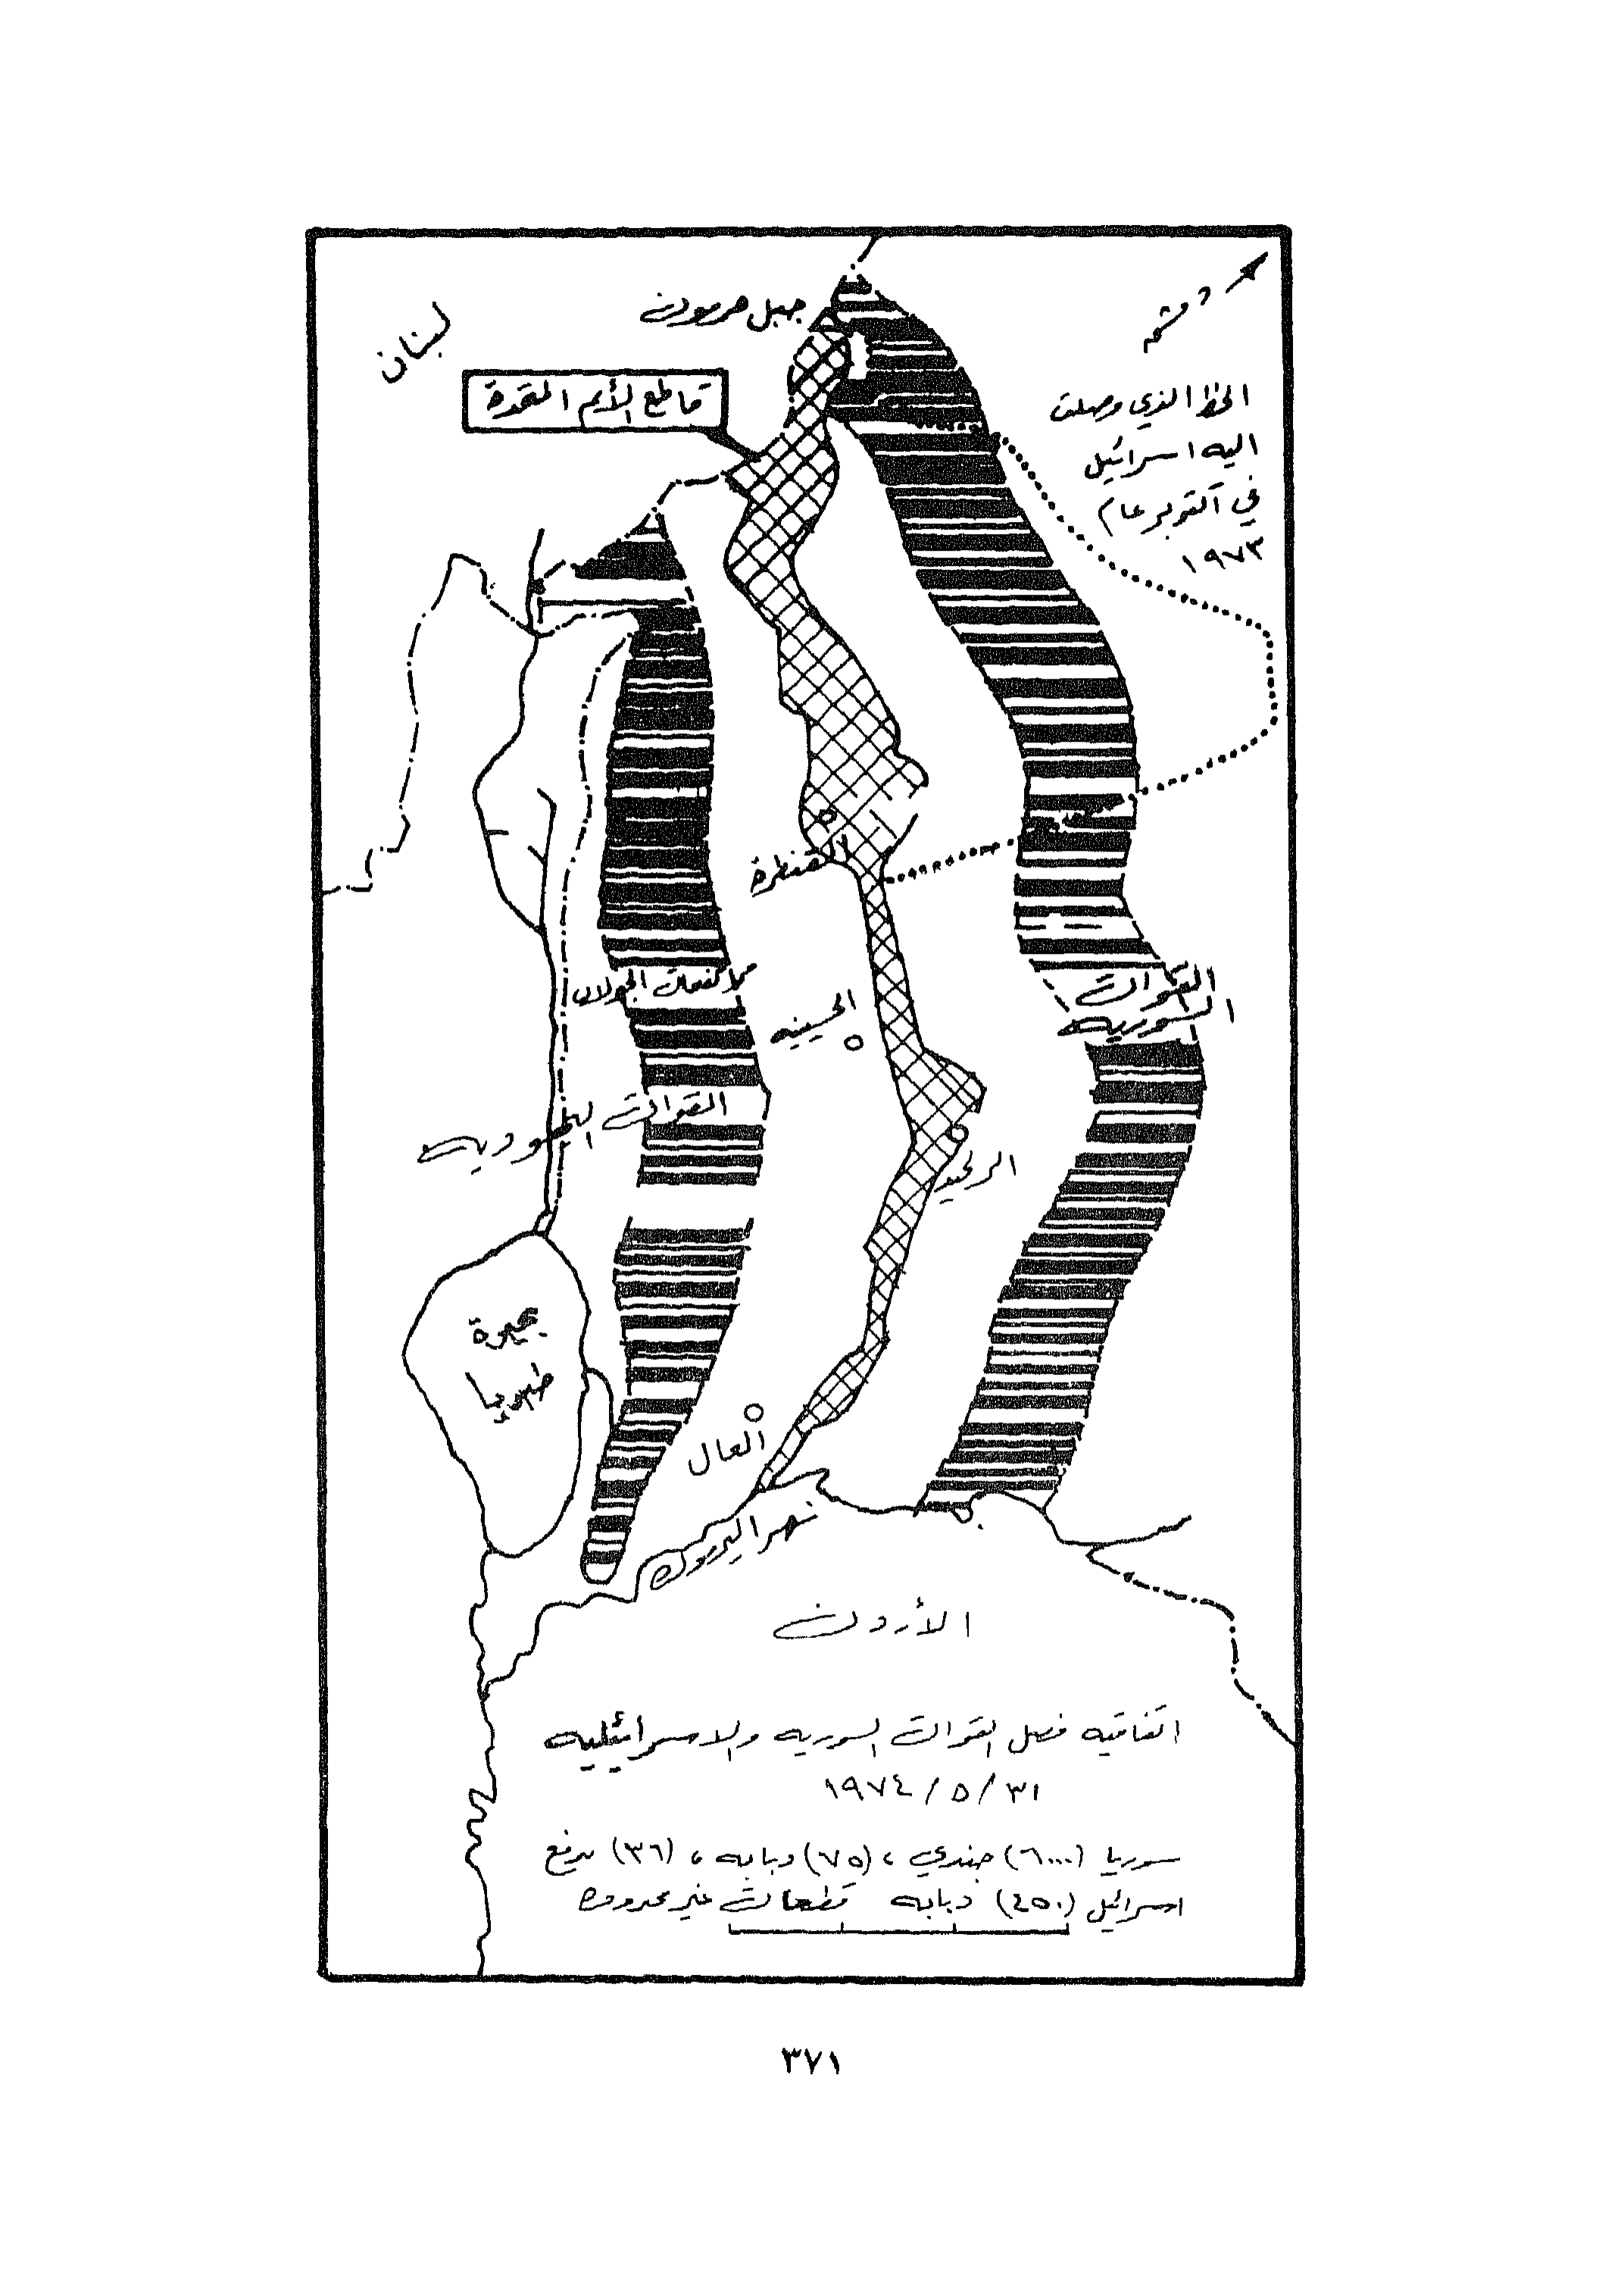 جبل حرمون
لبنان
دمشق
قاطع الأمم المتحدة
الخط الذي وصلت
اليه اسرائيل
في اكتوبر عام
١٩٧٣
القنطرة
القوات
السورية
الجولان
الحسينيه
القوات اليهودية
الرفيد
بحيرة
طبريا
العال
نهر اليرموك
الأردن
اتفاقيه فصل القوات السوريه والاسرائيليه
٣١/٥/١٩٧٤
سوريا (٦٠٠٠) جندي ، (٧٥) دبابه ، (٣٦) مدفع
اسرائيل (٤٥٠) دبابه قطعات غير محدودة
٣٧١